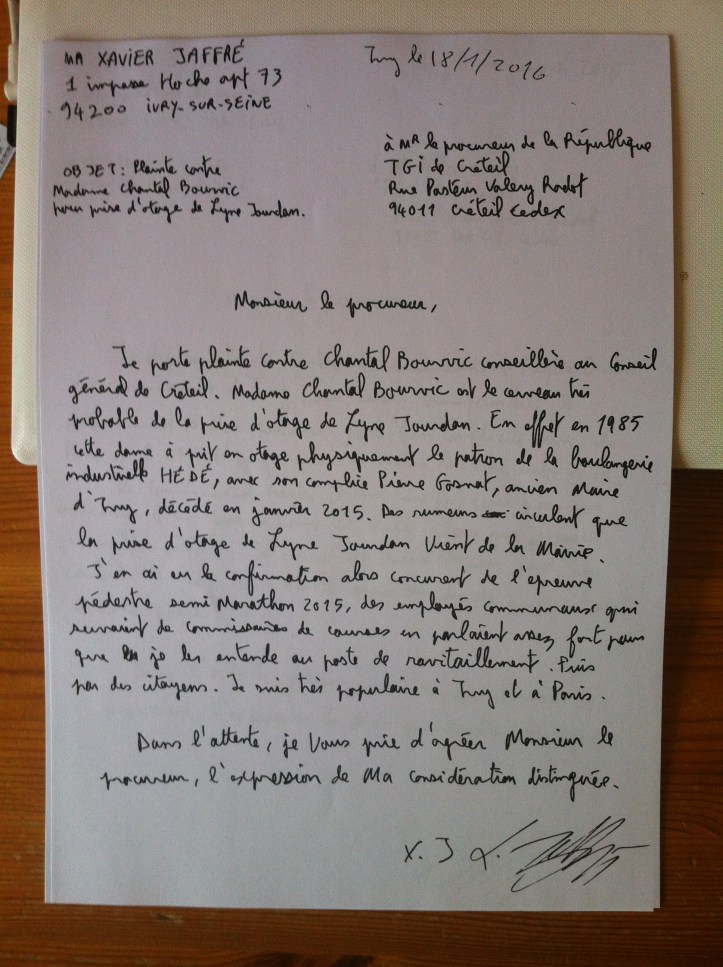 MR XAVIER JAFFRÉ
1 impasse Hoche apt 73
94200 IVRY-SUR-SEINE
Ivry le 18/1/2016
à MR le procureur de la République
TGI de Créteil
Rue Pasteur Valery Radot
94011 Créteil Cedex
OBJET: Plainte contre
Madame Chantal Bourvic
pour prise d'otage de Lyne Jourdan.
Monsieur le procureur,
Je porte plainte contre Chantal Bourvic conseillère au Conseil
général de Créteil. Madame Chantal Bourvic est le cerveau très
probable de la prise d'otage de Lyne Jourdan. En effet en 1985
cette dame à prit en otage physiquement le patron de la boulangerie
industrielle HÉDÉ, avec son complice Pierre Gosnat, ancien Maire
d'Ivry, décédé en janvier 2015. Des rumeurs circulent que
la prise d'otage de Lyne Jourdan vient de la Mairie.
J'en ai eu la confirmation alors concurent de l'épreuve
pédestre semi Marathon 2015, des employés communaux qui
servaient de commissaires de courses en parlaient assez fort pour
que je les entende au poste de ravitaillement. Puis
par des citoyens. Je suis très populaire à Ivry et à Paris.
Dans l'attente, je Vous prie d'agréer Monsieur le
procureur, l'expression de Ma considération distinguée.
X. J